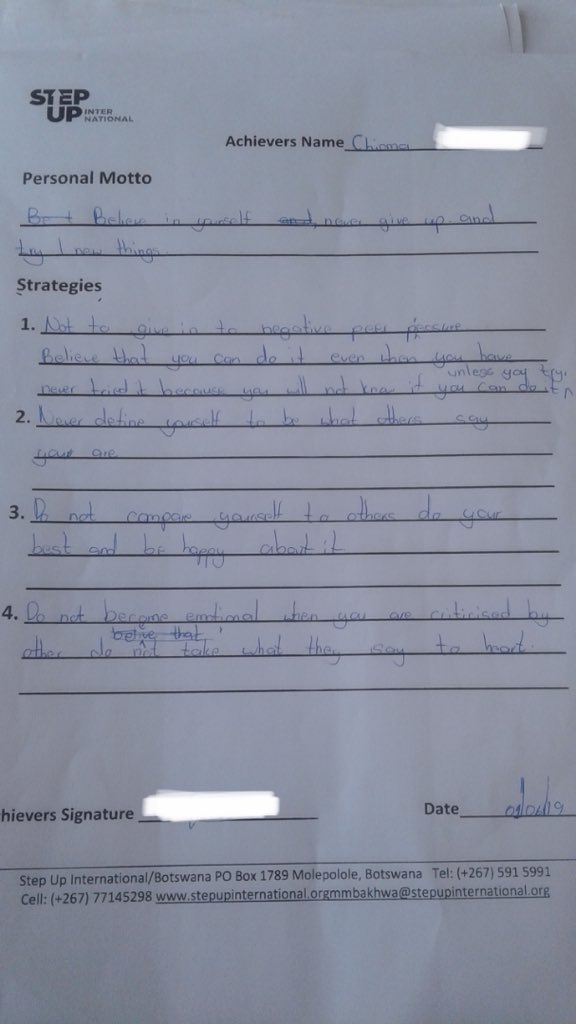 STEP
UP INTER
NATIONAL
Achievers Name Chioma
Personal Motto
Believe in yourself and, never give up and
try new things.
Strategies
1. Not to give in to negative peer pressure.
Believe that you can do it even when you have
unless you try.
never tried it because you will not know if you can do it ^
2. Never define yourself to be what others say
your are
3. Do not compare yourself to others do your
best and be happy about it
4. Do not become emotional when you are criticised by
belive that
other do not take what they say to heart.
hievers Signature
Date 01/04/19
Step Up International/Botswana PO Box 1789 Molepolole, Botswana Tel: (+267) 591 5991
Cell: (+267) 77145298 www.stepupinternational.orgmmbakhwa@stepupinternational.org